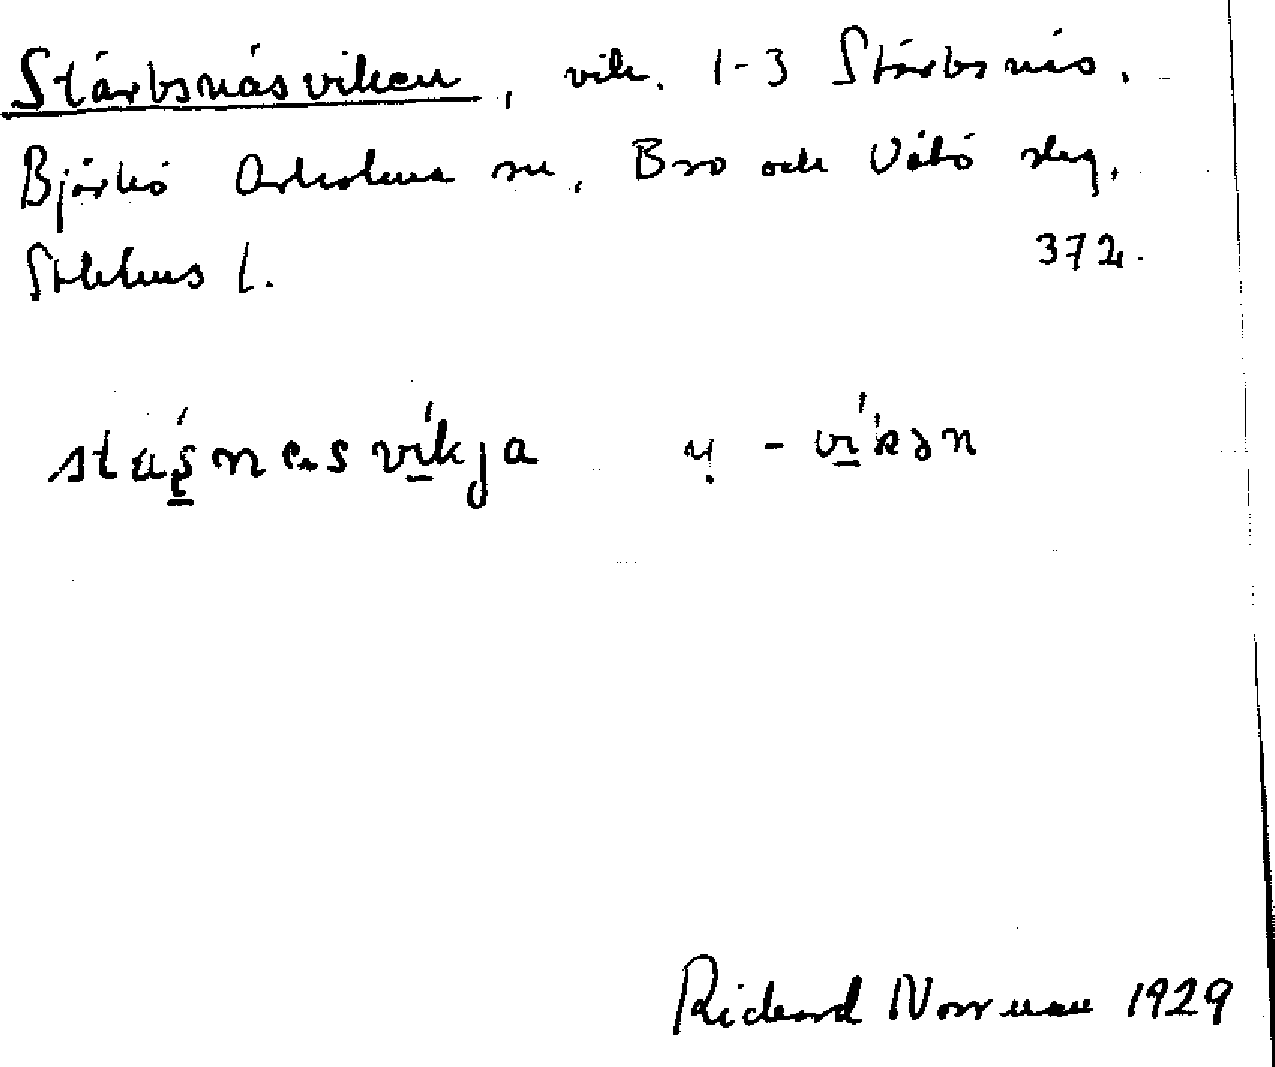 Stärbsnäsviken, vik. 1-3 Stärbsnäs.
Björkö Arholma sn, Bro och Vätö slg.
Sthlms l. 372.
-vikən
Richard Norrman 1929